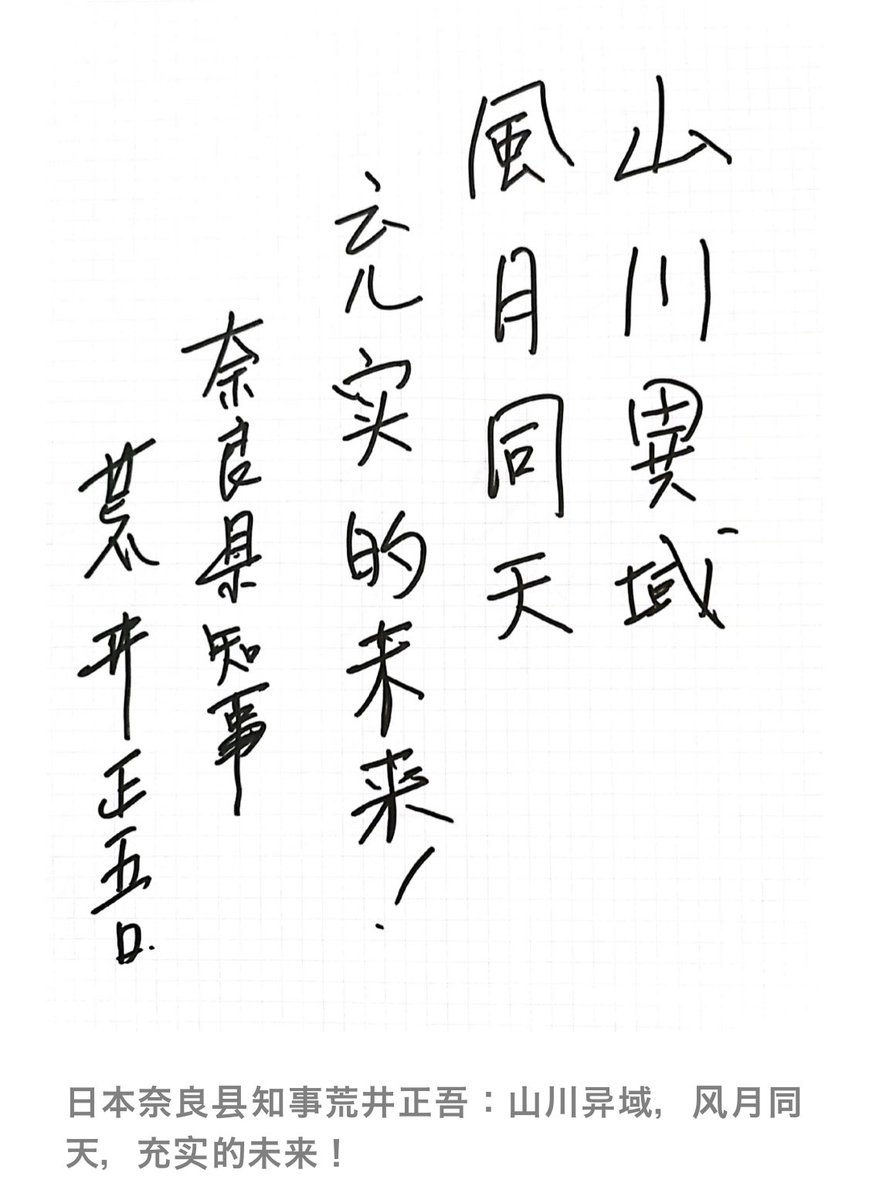 山川異域
風月同天
充实的未来！
奈良県知事
荒井正吾
日本奈良县知事荒井正吾：山川异域，风月同
天，充实的未来！